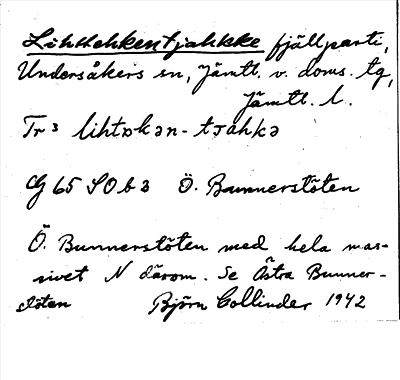 Lihttehkentjahkke fjällparti,
Undersåkers sn, Jämtl. v. doms. tg,
Jämtl. l.
Tr 3 lihtɒkən-tjahkə
G 65 S O b 3 Ö. Bunnerstöten
Ö. Bunnerstöten med hela mas-
sivet N därom. Se Östra Bunner-
stöten Björn Collinder 1942